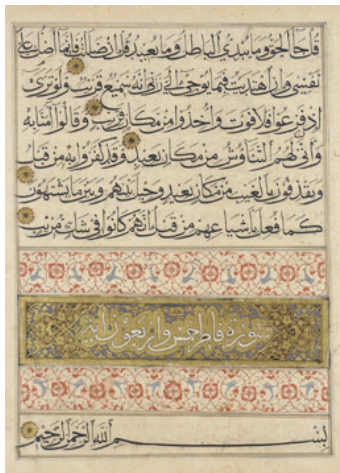 قل جا الحق وما يبدي الباطل وما يعيد قل ان ضللت فانما اضل على
نفسي وان اهتديت فبما يوحي الي ربي انه سميع قريب ولو ترى
اذ فزعوا فلا فوت واخذوا من مكان قريب وقالوا آمنا به
وانى لهم التناوش من مكان بعيد وقد كفروا به من قبل
ويقذفون بالغيب من مكان بعيد وحيل بينهم وبين ما يشتهون
كما فعل باشياعهم من قبل انهم كانوا في شك مريب
سورة فاطر خمس واربعون اية
بسم الله الرحمن الرحيم